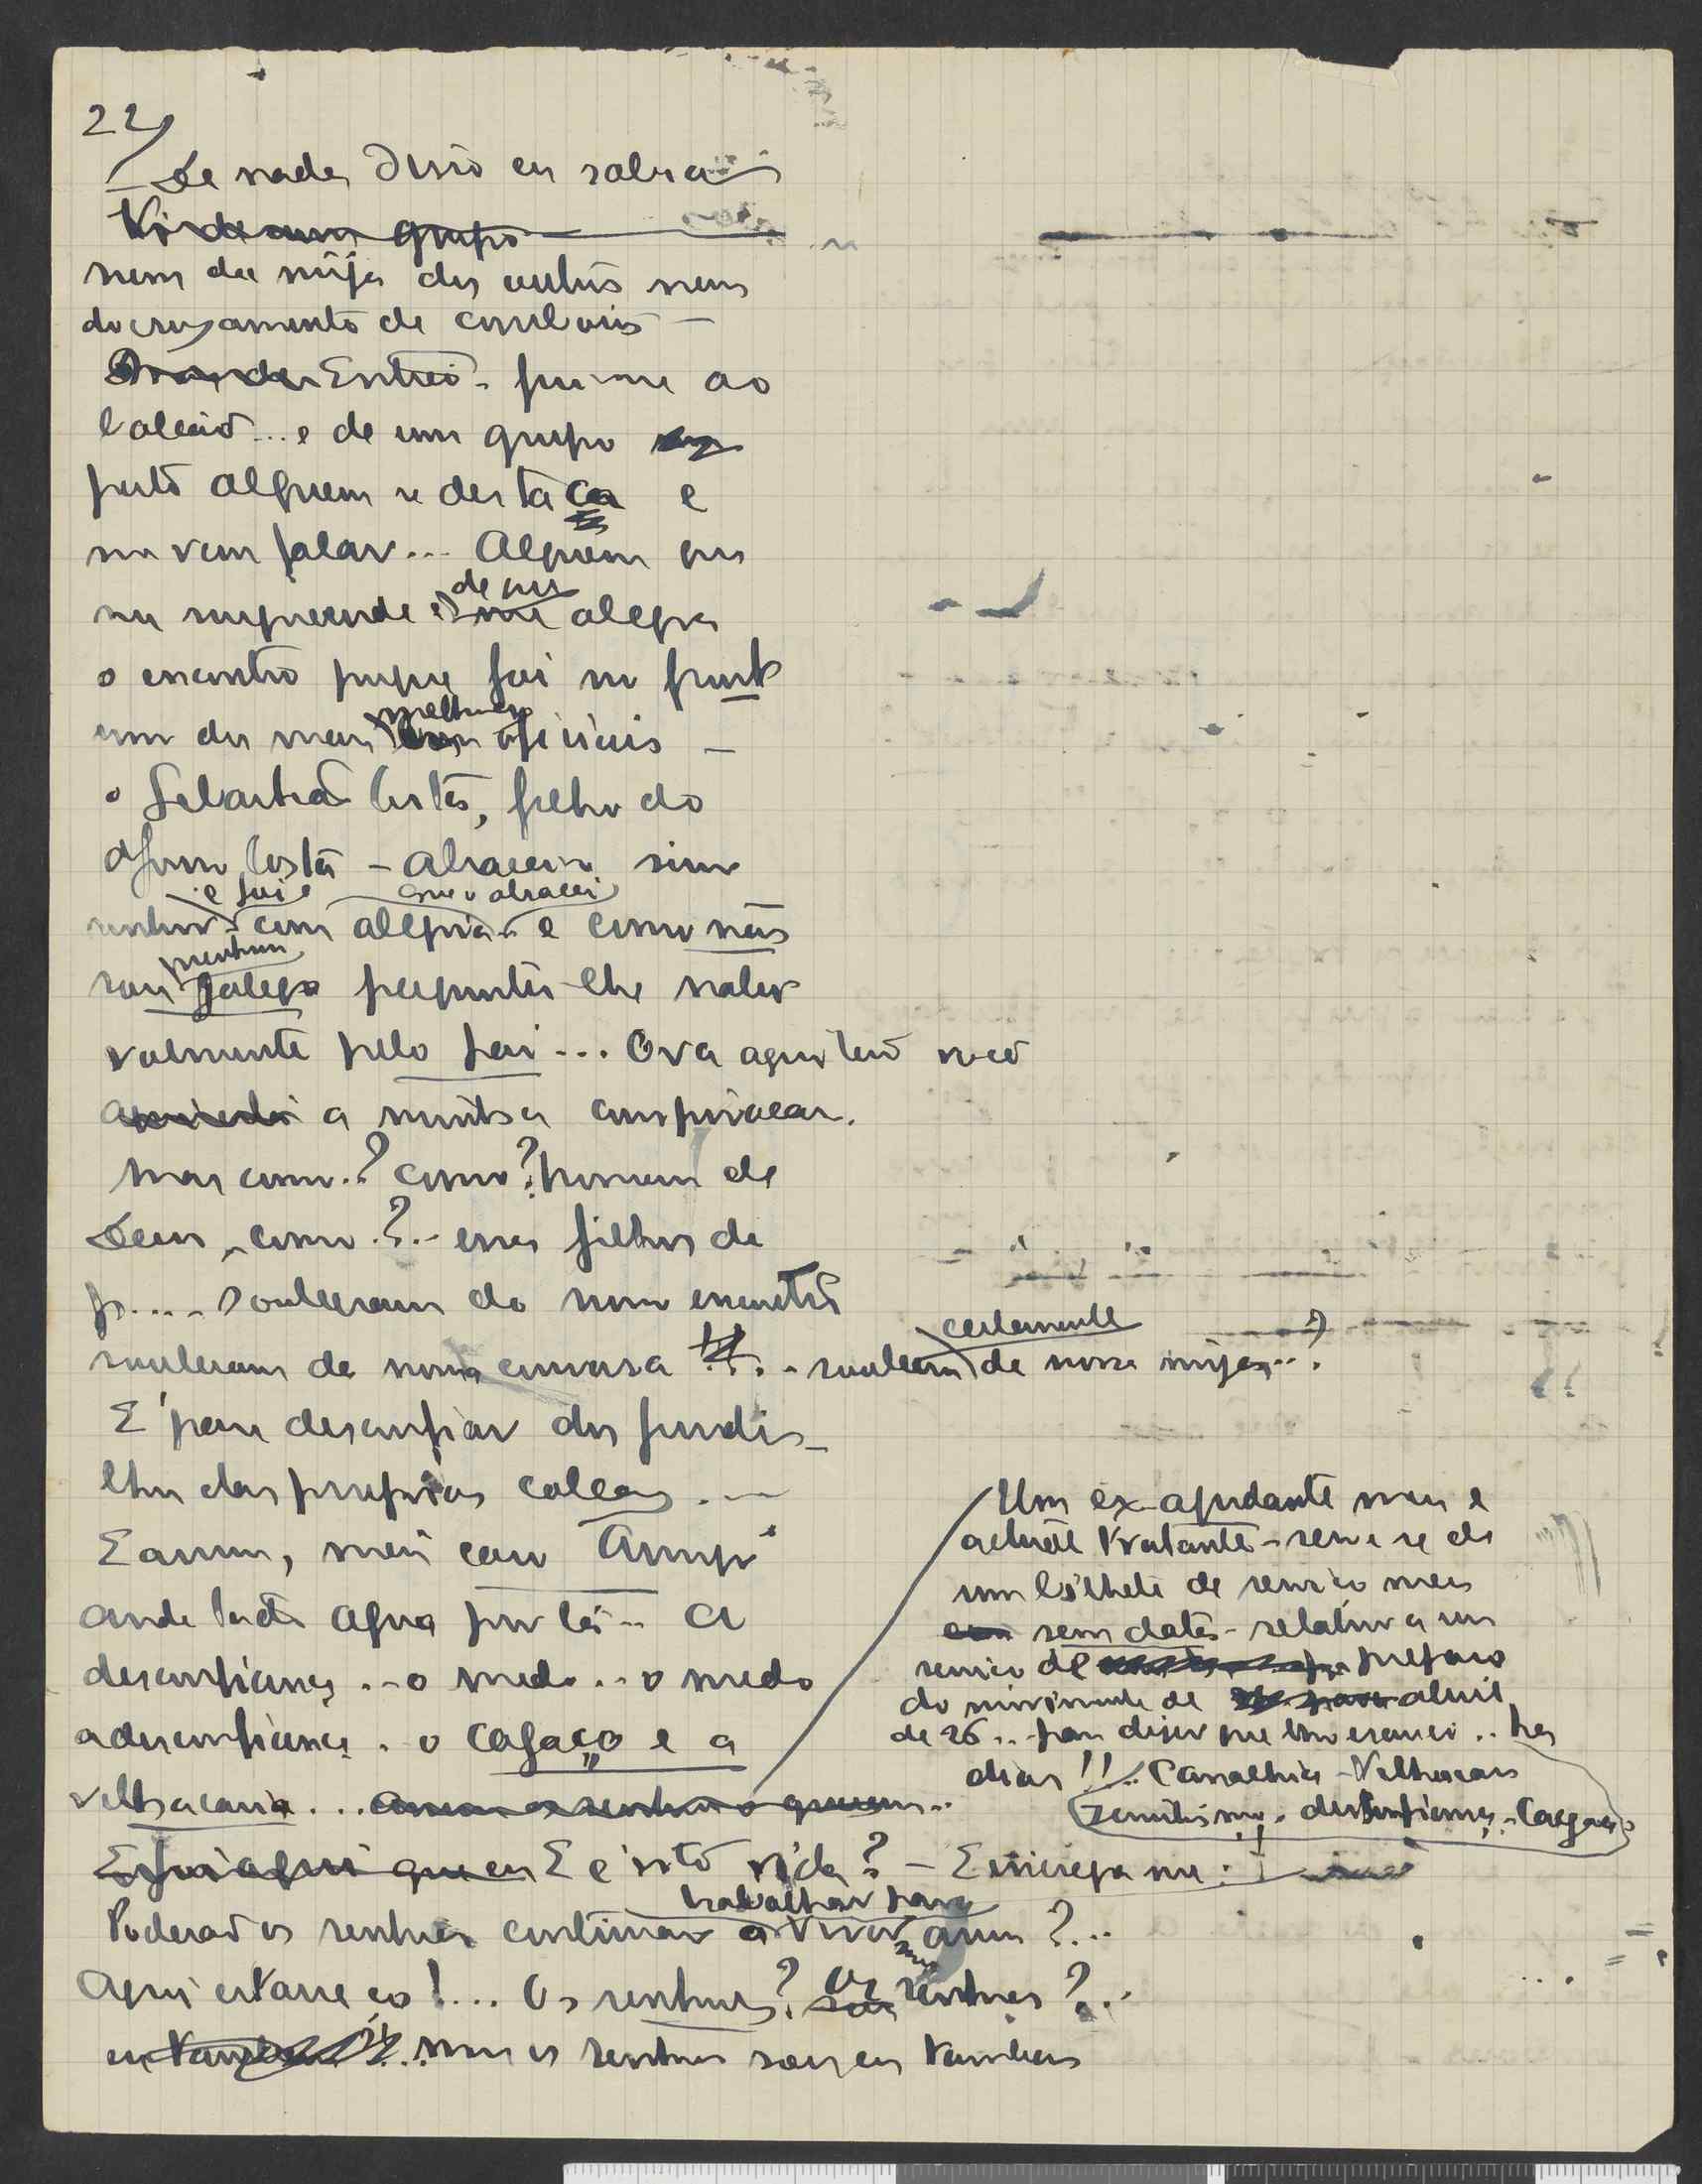 22)
— De nada disso eu sabia
nem da mija dos outros nem
do cruzamento de comboios —
Entrei. fui-me ao
balcão... e de um grupo
perto alguem se destaca e
me vem falar... Alguem que
me surpreende e de que me alegra
o encontro porque foi no front
um dos meus melhores oficiais —
o Sebastião Costa, filho do
Afonso Costa — abracei-o sim
senhor e foi com alegria que o abracei e como não
sou nenhum galego perguntei-lhe natu
ralmente pelo pai... Ora aqui tem você
a minha conspiração.
Mas como..? como? homem de
Deus, como..? esses filhos de
p.... souberam do nosso encontro
souberam da nossa conversa ... souberam certamente da nossa mija...?
E' para desconfiar dos fundi-
lhos das proprias calças. —
E assim, meu caro Armando
anda tudo agora por lá... A
desconfiança... o medo... o medo
a desconfiança.. o cagaço e a
velhacaria...
E é isto vida? —
Poderão os senhores continuar a trabalhar para viver assim?...
Aqui estava eu!... Os senhores? Os senhores?..
mas os senhores sou eu tambem
Um ex-ajudante meu e
actual tratante — serve-se de
um bilhete de serviço meu
sem data — relativo a um
serviço de preparo
do movimento de abril
de 26... para dizer que lho escrevi.. ha
dias!!.. Canalhice — Velhacaria
desconfiança — Cagaço